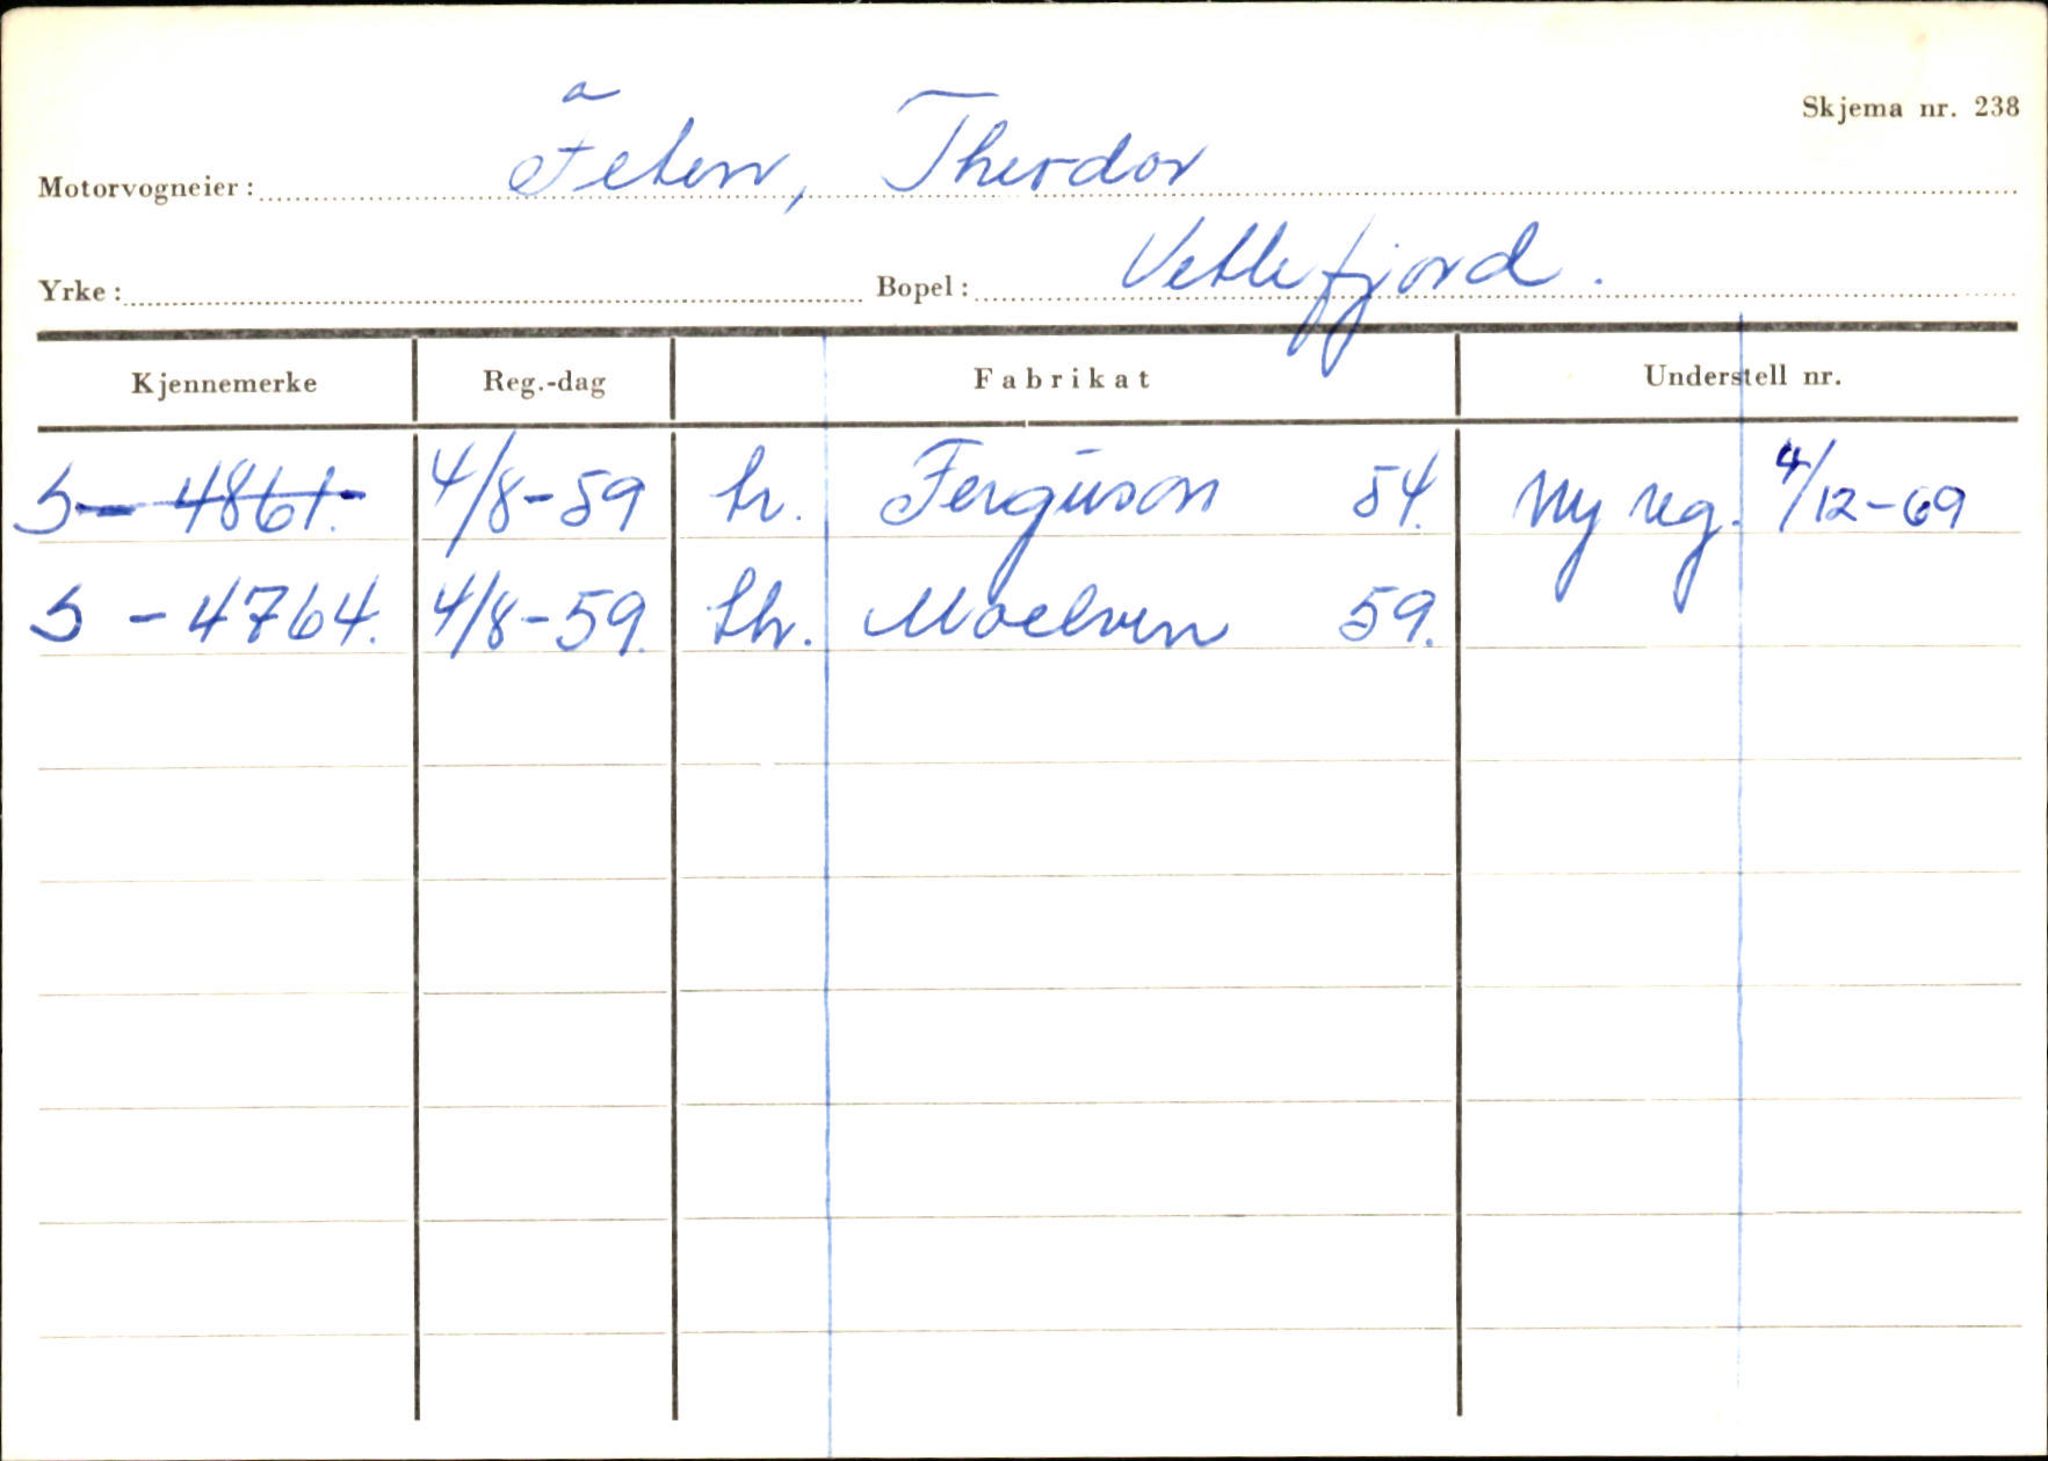 Skjema nr. 238
Motorvogneier: Feten, Theodor
Yrke: Bopel: Vetlefjord.
Kjennemerke Reg.-dag Fabrikat Understell nr.
S- 4861. 4/8-59 tr. Ferguson 54. Ny reg. 4/12-69
S - 4764. 4/8-59. thr. Moelven 59.